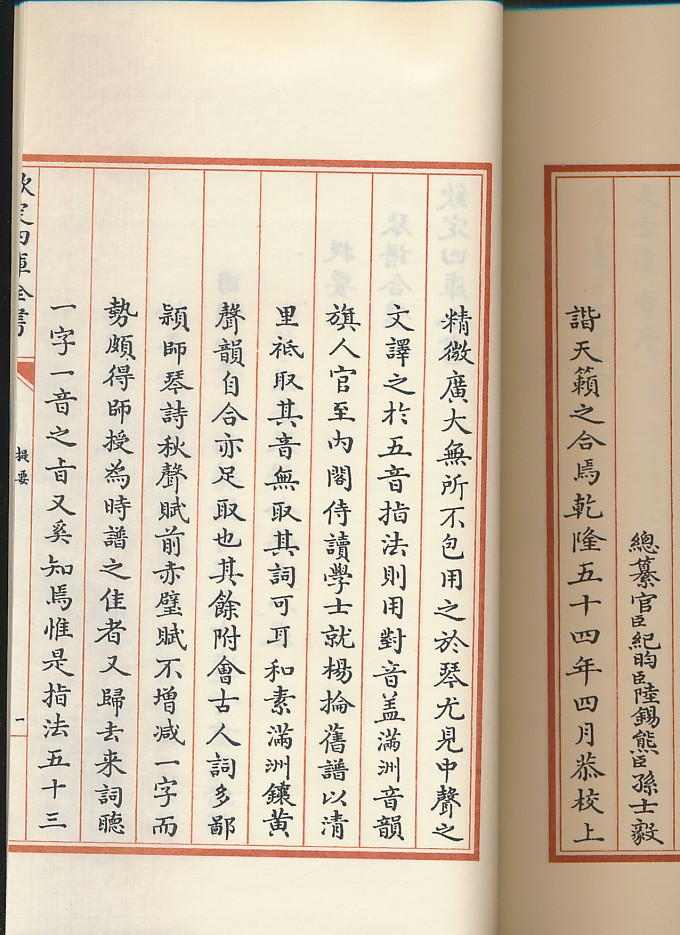 欽定四庫全書
提要
一
一字一音之旨又奚知焉惟是指法五十三
勢頗得師授為時譜之佳者又歸去来詞聽
潁師琴詩秋聲賦前赤璧賦不增减一字而
聲韻自合亦足取也其餘附會古人詞多鄙
里祗取其音無取其詞可耳和素滿洲鑲黄
旗人官至内閣侍讀學士就楊掄舊譜以清
文譯之於五音指法則用對音盖滿洲音韻
精微廣大無所不包用之於琴尤見中聲之
諧天籟之合焉乾隆五十四年四月恭校上
總纂官臣紀昀臣陸錫熊臣孫士毅